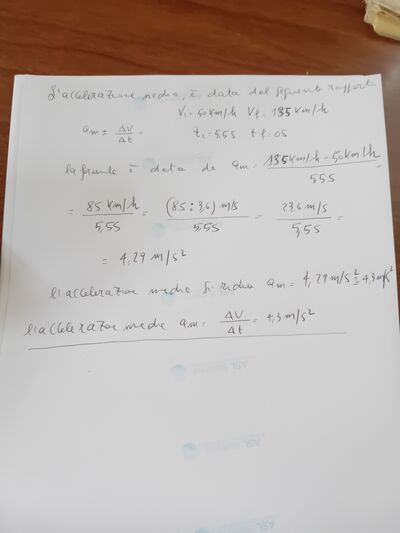 L'accelerazione media, è data dal seguente rapporto
Vi = 50 km/h Vf = 135 km/h
am = ΔV/Δt = ti = 5,5s tf = 0s
la formula è data da am = 135 km/h - 50 km/h / 5,5s =
= 85 km/h / 5,5s = (85 : 3,6) m/s / 5,5s = 23,6 m/s / 5,5s =
= 4,29 m/s²
L'accelerazione media am = 4,29 m/s² = 4,3 m/s²
L'accelerazione media am = ΔV/Δt = 4,3 m/s²